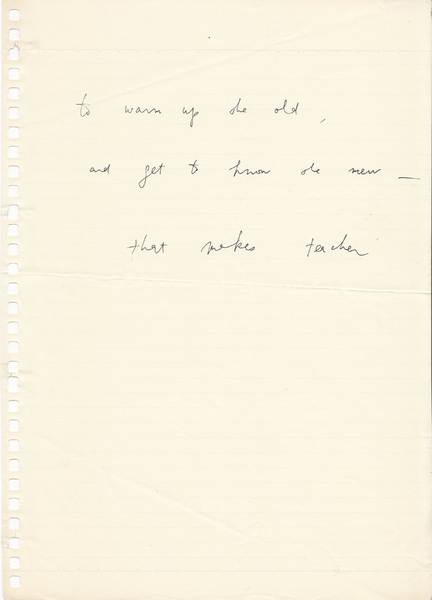 to warm up the old,
and get to know the new —
that makes teacher